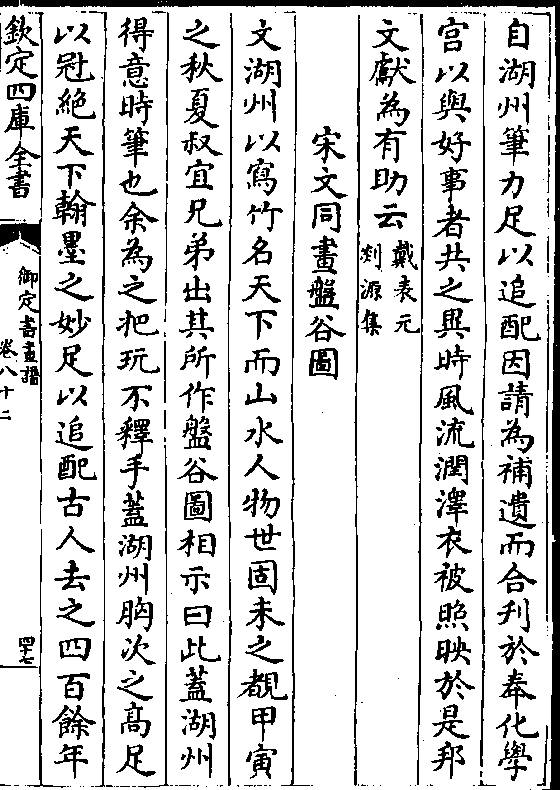 自湖州筆力足以追配因請為補遺而合刋於奉化學
宫以與好事者共之異時風流潤澤衣被照映於是邦
文獻為有助云戴表元剡源集
宋文同畫盤谷圖
文湖州以寫竹名天下而山水人物世固未之覩甲寅
之秋夏叔宜兄弟出其所作盤谷圖相示曰此蓋湖州
得意時筆也余為之把玩不釋手蓋湖州胸次之高足
以冠絶天下翰墨之妙足以追配古人去之四百餘年
欽定四庫全書
御定書畫譜
卷八十二
四十七